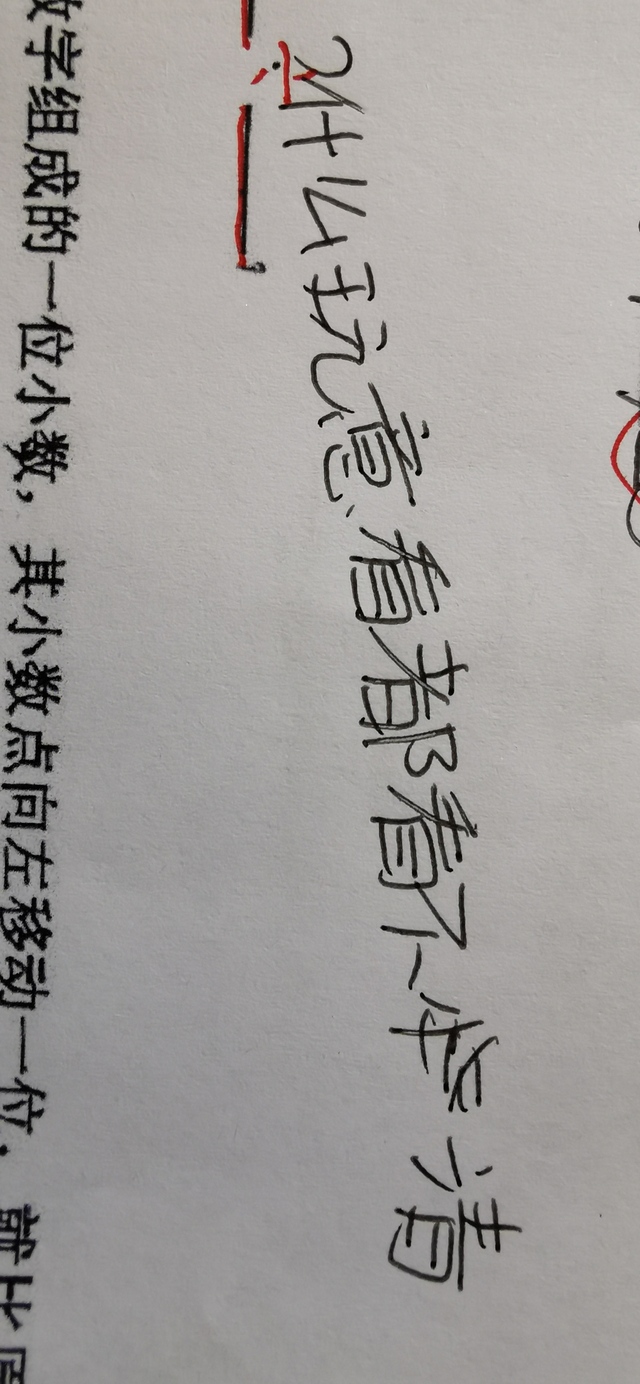 什么玩意看都看不清
数字组成的一位小数，其小数点向左移动一位，就比原